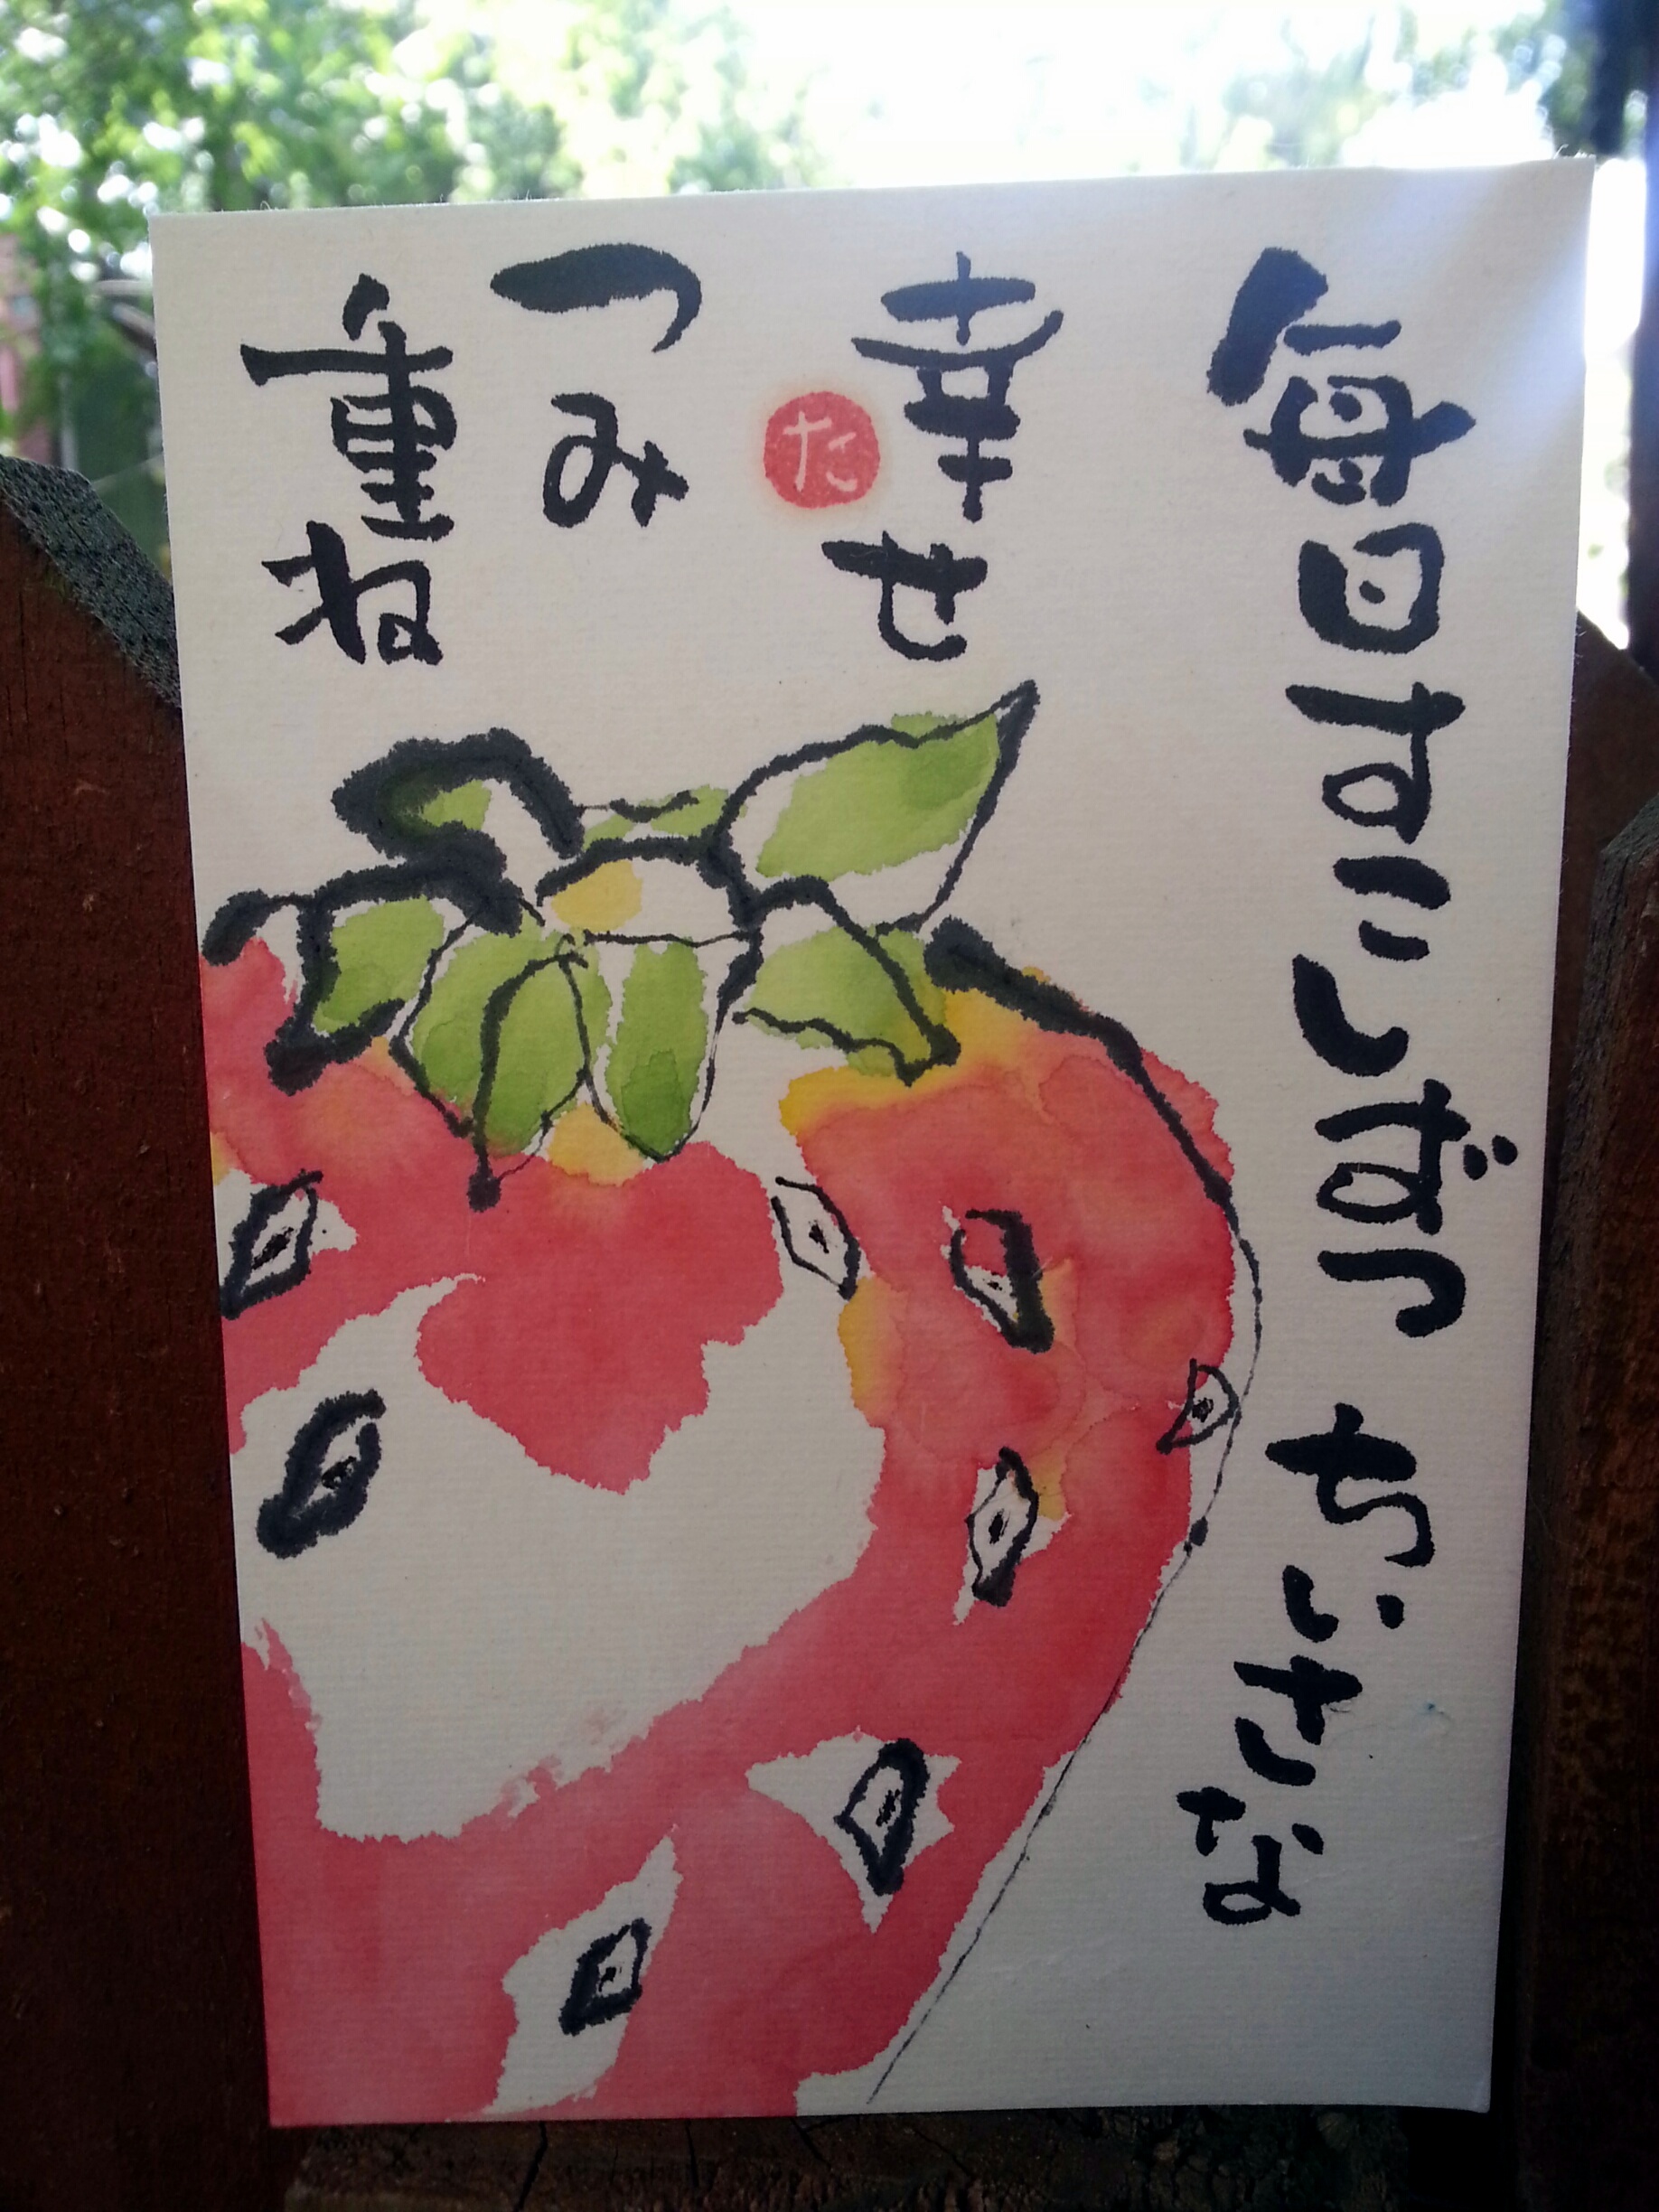 毎日すこしずつ ちいさな
幸せ
つみ
重ね
た